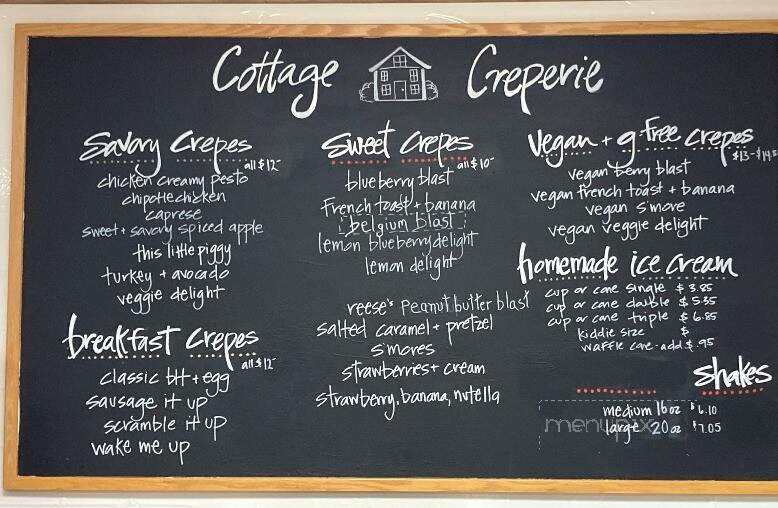 Cottage Creperie
Savory Crepes
all $12-
chicken creamy pesto
chipotle chicken
caprese
sweet + savory spiced apple
this little piggy
turkey + avocado
veggie delight
breakfast crepes
all $12-
classic blt + egg
sausage it up
scramble it up
wake me up
Sweet Crepes
all $10-
blueberry blast
French toast + banana
belgium blast
lemon blueberry delight
lemon delight
reese's Peanut butter blast
salted caramel + pretzel
s'mores
strawberries + cream
strawberry, banana, nutella
Vegan + g. free crepes
vegan berry blast
vegan french toast + banana
vegan s'more
vegan veggie delight
homemade ice cream
cup or cone single $3.85
cup or cone double $5.35
cup or cone triple $6.85
kiddie size $
waffle cone - add $.95
shakes
medium 16 oz $6.10
large 20 oz $7.05
menupix